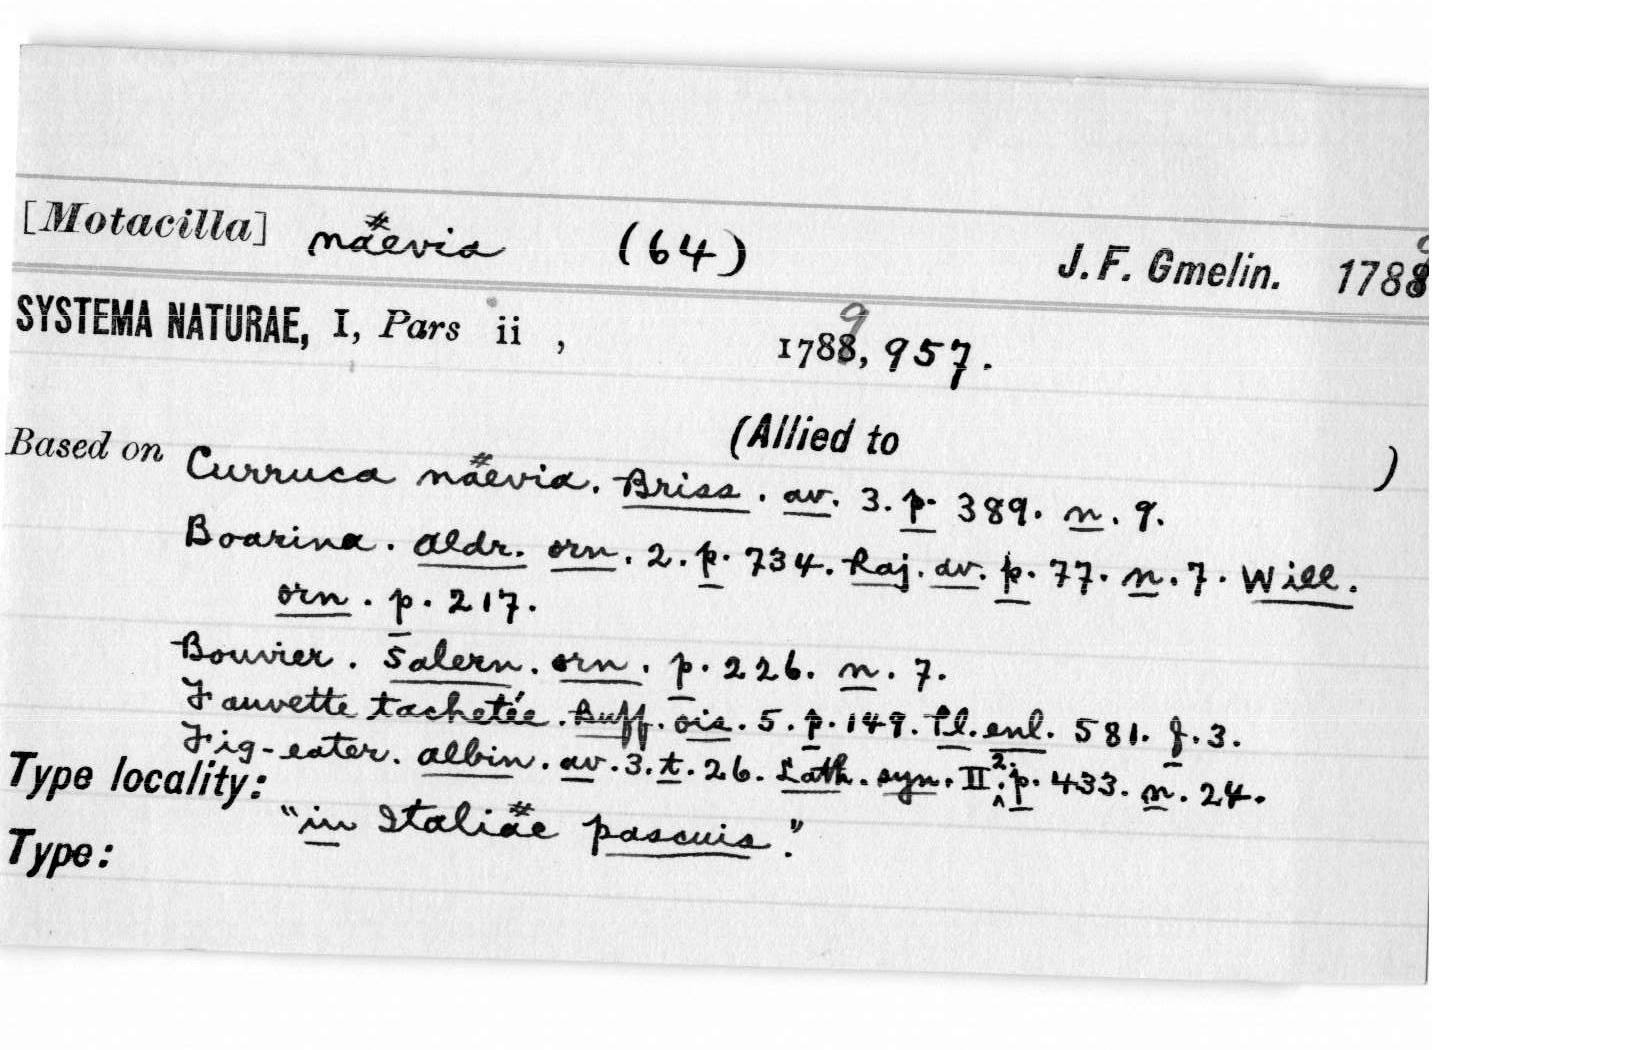 [Motacilla] naevia (64) J. F. Gmelin. 1789
SYSTEMA NATURAE, I, Pars ii , 1789, 957.
(Allied to )
Based on Curruca naevia. Briss. av. 3. p. 389. n. 9.
Boarina. Aldr. orn. 2. p. 734. Raj. av. p. 77. n. 7. Will.
orn. p. 217.
Bouvier. Salern. orn. p. 226. n. 7.
Fauvette tachetée. Buff. ois. 5. p. 149. Pl. enl. 581. f. 3.
Fig-eater. Albin. av. 3. t. 26. Lath. syn. II 2. p. 433. n. 24.
Type locality: "in Italiae pascuis."
Type: